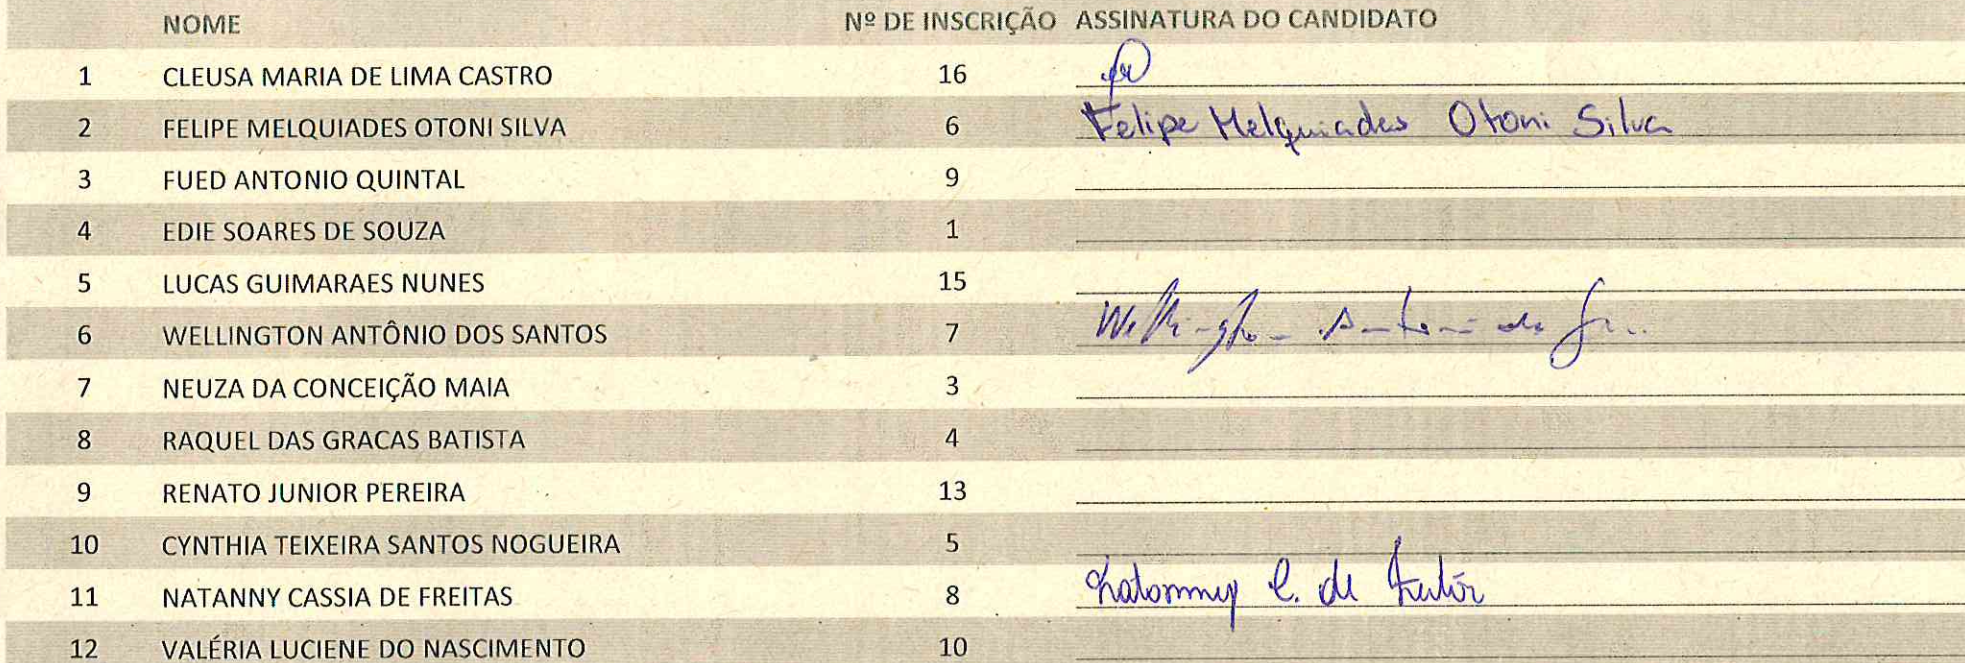 NOME Nº DE INSCRIÇÃO ASSINATURA DO CANDIDATO
1 CLEUSA MARIA DE LIMA CASTRO 16
2 FELIPE MELQUIADES OTONI SILVA 6 Felipe Melquiades Otoni Silva
3 FUED ANTONIO QUINTAL 9
4 EDIE SOARES DE SOUZA 1
5 LUCAS GUIMARAES NUNES 15
6 WELLINGTON ANTÔNIO DOS SANTOS 7 Wellington Antonio
7 NEUZA DA CONCEIÇÃO MAIA 3
8 RAQUEL DAS GRACAS BATISTA 4
9 RENATO JUNIOR PEREIRA 13
10 CYNTHIA TEIXEIRA SANTOS NOGUEIRA 5
11 NATANNY CASSIA DE FREITAS 8 Natanny C. de Freitas
12 VALÉRIA LUCIENE DO NASCIMENTO 10